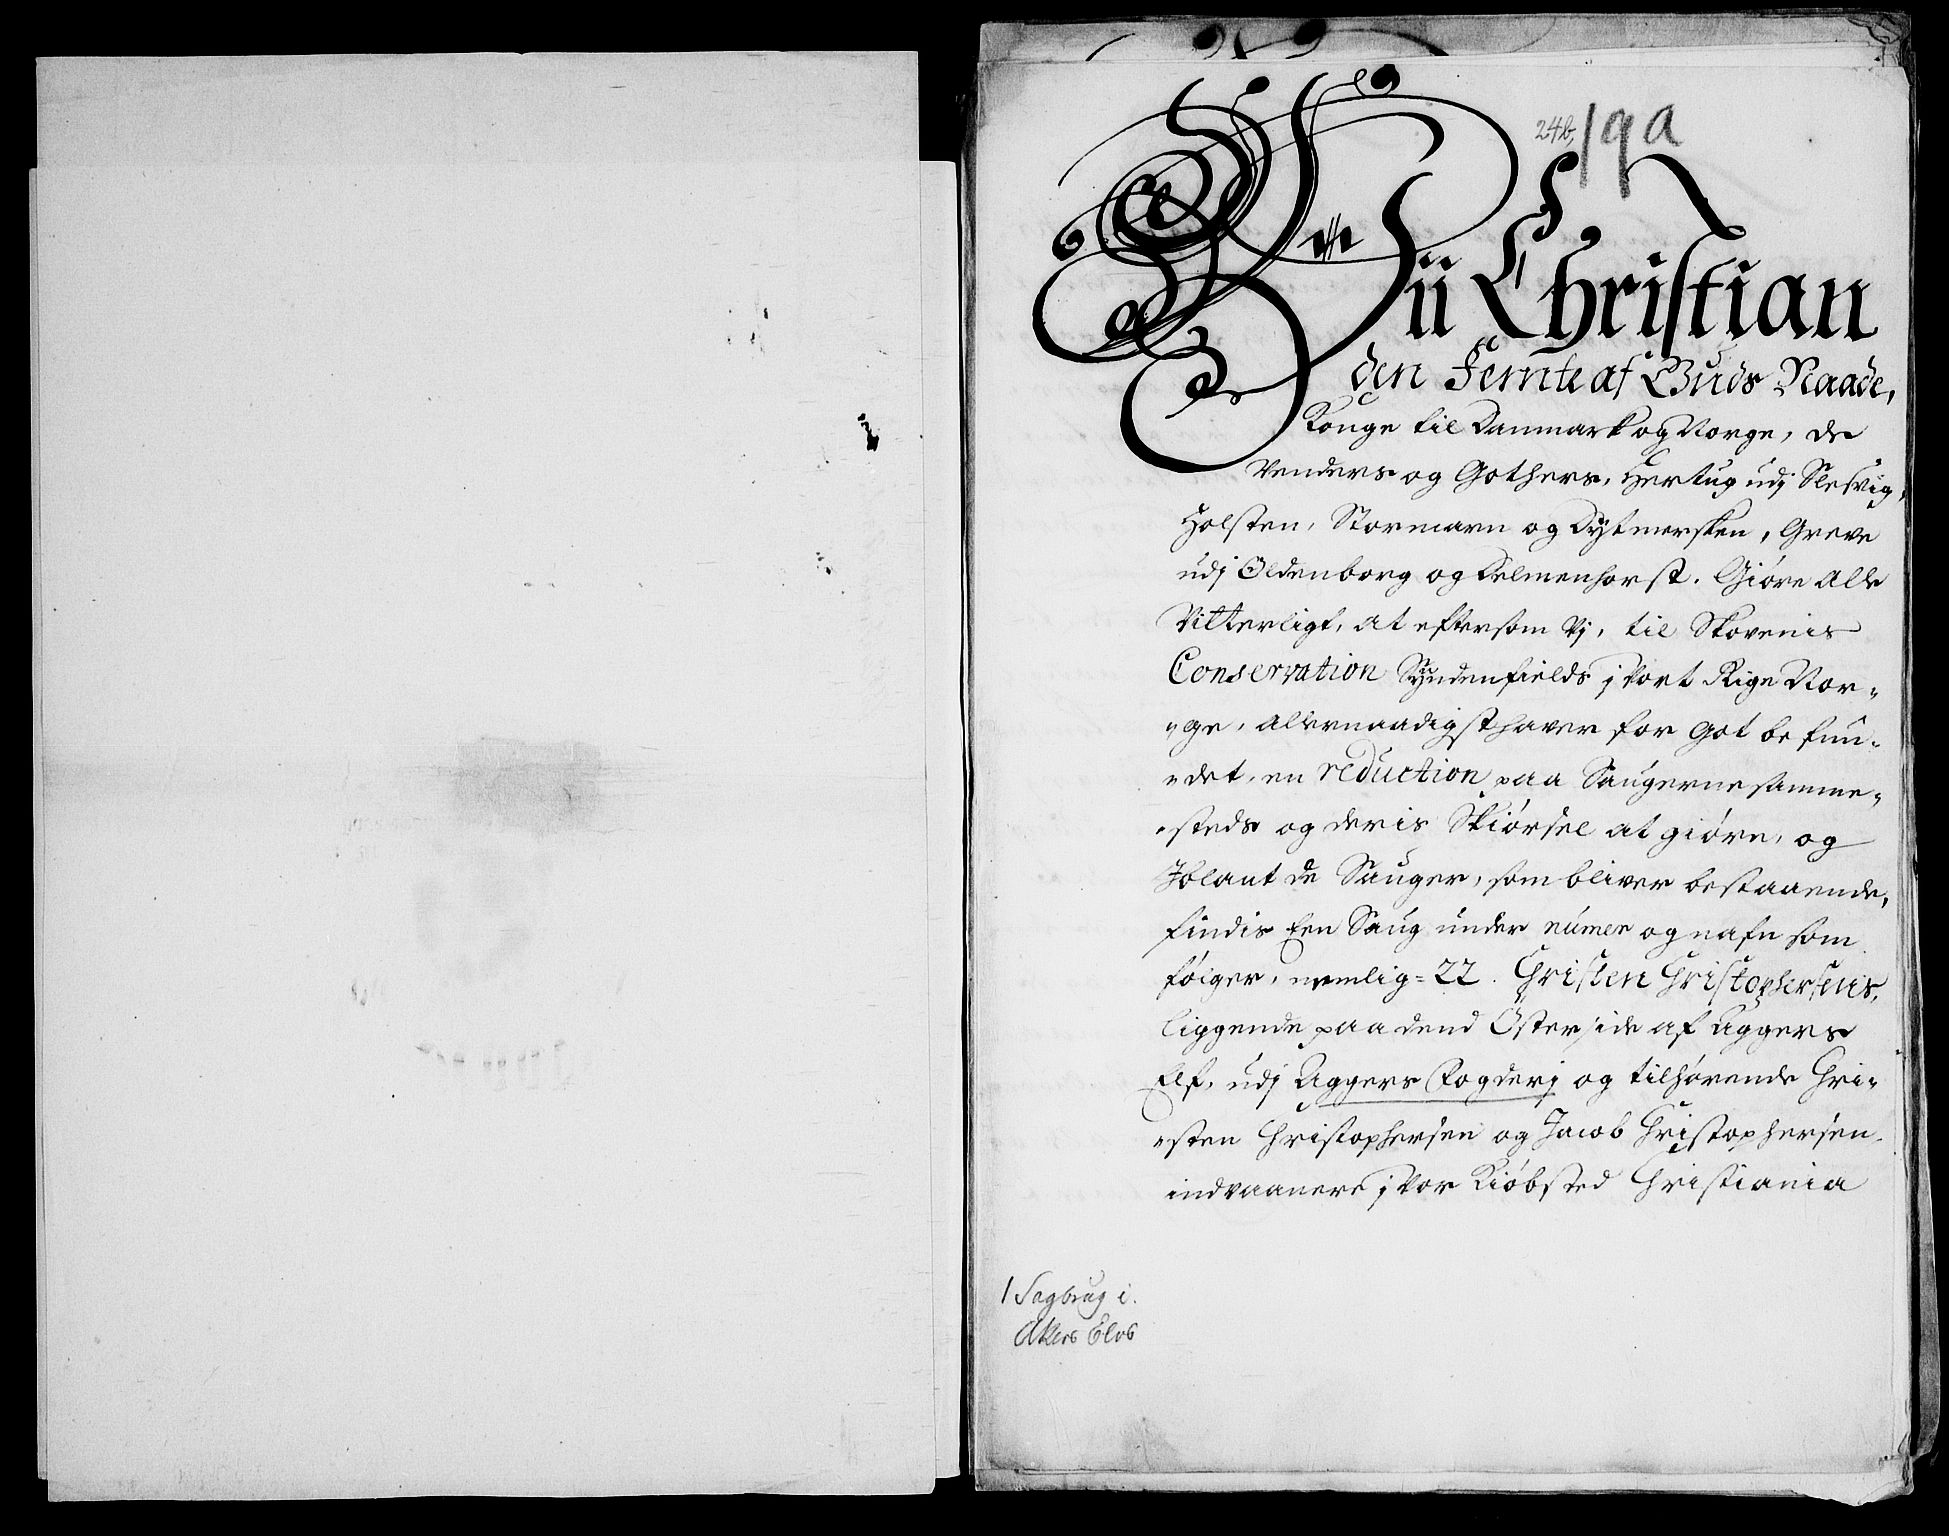 24b, 19a
Vii Christian
den Femte af Guds Naade,
Konge til Danmark og Norge, de
Venders og Gothers, Hertug udj Slesvig,
Holsten, Stormarn og Dytmersken, Greve
udj Oldenborg og Delmenhorst. Giöre Alle
Vitterligt, at eftersom Vj, til Skovenis
Conservation Syndenfields j Vort Rige Nor-
-ge, allernaadigst haver for got befun-
-det, en reduction paa Saugerne samme-
-steds og deris Skiörsel at giöre, og
Jblant de Sauger, som bliver bestaaende,
findis Een Saug under numer og nafn som
fölger, nemlig = 22. Christen Christophersens,
liggende paa dend Österside af Aggers
Elf, udj Aggers Fogderj og tilhörende Chri-
-sten Christophersen og Jacob Christophersen
indvaanere j Vor Kiöbsted Christiania
1 Sagbrug i
Akers Elvs